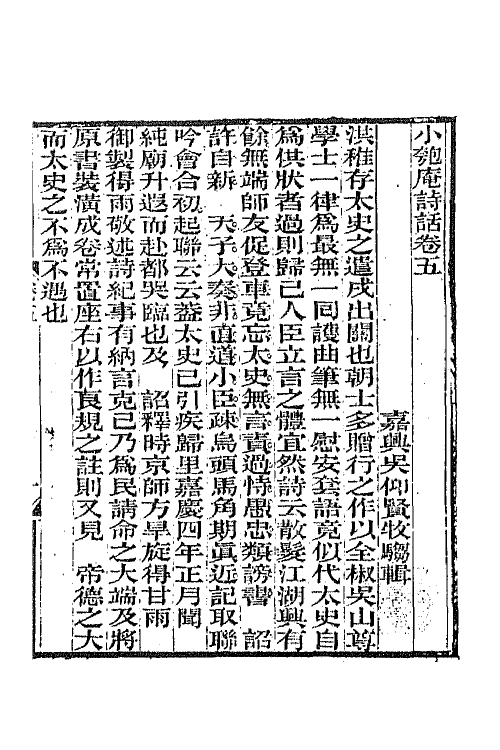 小匏庵詩話卷五
嘉興吳仰賢牧騶輯
洪稚存太史之遣戍出關也朝士多贈行之作以全椒吳山尊
學士一律為最無一回護曲筆無一慰安套語竟似代太史自
為供狀者過則歸已人臣立言之體宜然詩云散髮江湖興有
餘無端師友促登車竟忘太史無言責過恃愚忠類謗書 詔
許自新 天子大奏非直道小臣疎烏頭馬角期眞近記取聯
吟會合初起聯云云葢太史已引疾歸里嘉慶四年正月聞
純廟升遐而赴都哭臨也及 詔釋時京師方旱旋得甘雨
御製得雨敬述詩紀事有納言克己乃為民請命之大端及將
原書裝潢成卷常置座右以作良規之註則又見 帝德之大
而太史之不為不遇也